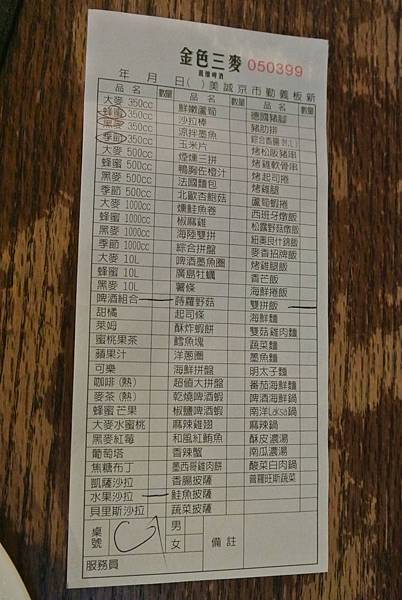 金色三麥 050399
蔬釀啤酒
年 月 日( ) 美誠京市勤義板新
品名 數量 品名 數量 品名 數量
大麥 350cc 鮮嫩蘆筍 德國豬腳
蜂蜜 350cc 沙拉棒 豬肋排
黑麥 350cc 涼拌墨魚 綜合香腸
季節 350cc 玉米片 烤松阪豬串
大麥 500cc 煙燻三拼 烤雞軟骨串
蜂蜜 500cc 鴨胸佐橙汁 烤起司捲
黑麥 500cc 法國麵包 烤雞腿
季節 500cc 北歐杏鮑菇 蘆筍蝦捲
大麥 1000cc 燻鮭魚卷 西班牙燉飯
蜂蜜 1000cc 椒麻雞 松露野菇燉飯
黑麥 1000cc 海陸雙拼 紐奧良什錦飯
季節 1000cc 綜合拼盤 麥香招牌飯
大麥 10L 啤酒墨魚圈 烤雞腿飯
蜂蜜 10L 廣島牡蠣 香芒飯
黑麥 10L 薯條 海鮮捲飯
啤酒組合 蒔蘿野菇 雙拼飯
甜橘 起司條 海鮮麵
萊姆 酥炸蝦餅 雙菇雞肉麵
蜜桃果茶 鱈魚塊 蔬菜麵
蘋果汁 洋蔥圈 墨魚麵
可樂 海鮮拼盤 明太子麵
咖啡(熱) 超值大拼盤 番茄海鮮麵
麥茶(熱) 乾燒啤酒蝦 啤酒海鮮鍋
蜂蜜芒果 椒鹽啤酒蝦 南洋Laksa鍋
大麥水蜜桃 麻辣雞翅 麻辣鍋
黑麥紅莓 和風紅鮪魚 酥皮濃湯
葡萄塔 香辣蟹 南瓜濃湯
焦糖布丁 墨西哥雞肉餅 酸菜白肉鍋
凱薩沙拉 香腸披薩 普羅旺斯蔬菜
水果沙拉 鮭魚披薩
貝里斯沙拉 蔬菜披薩
桌號 男 女 備註
服務員